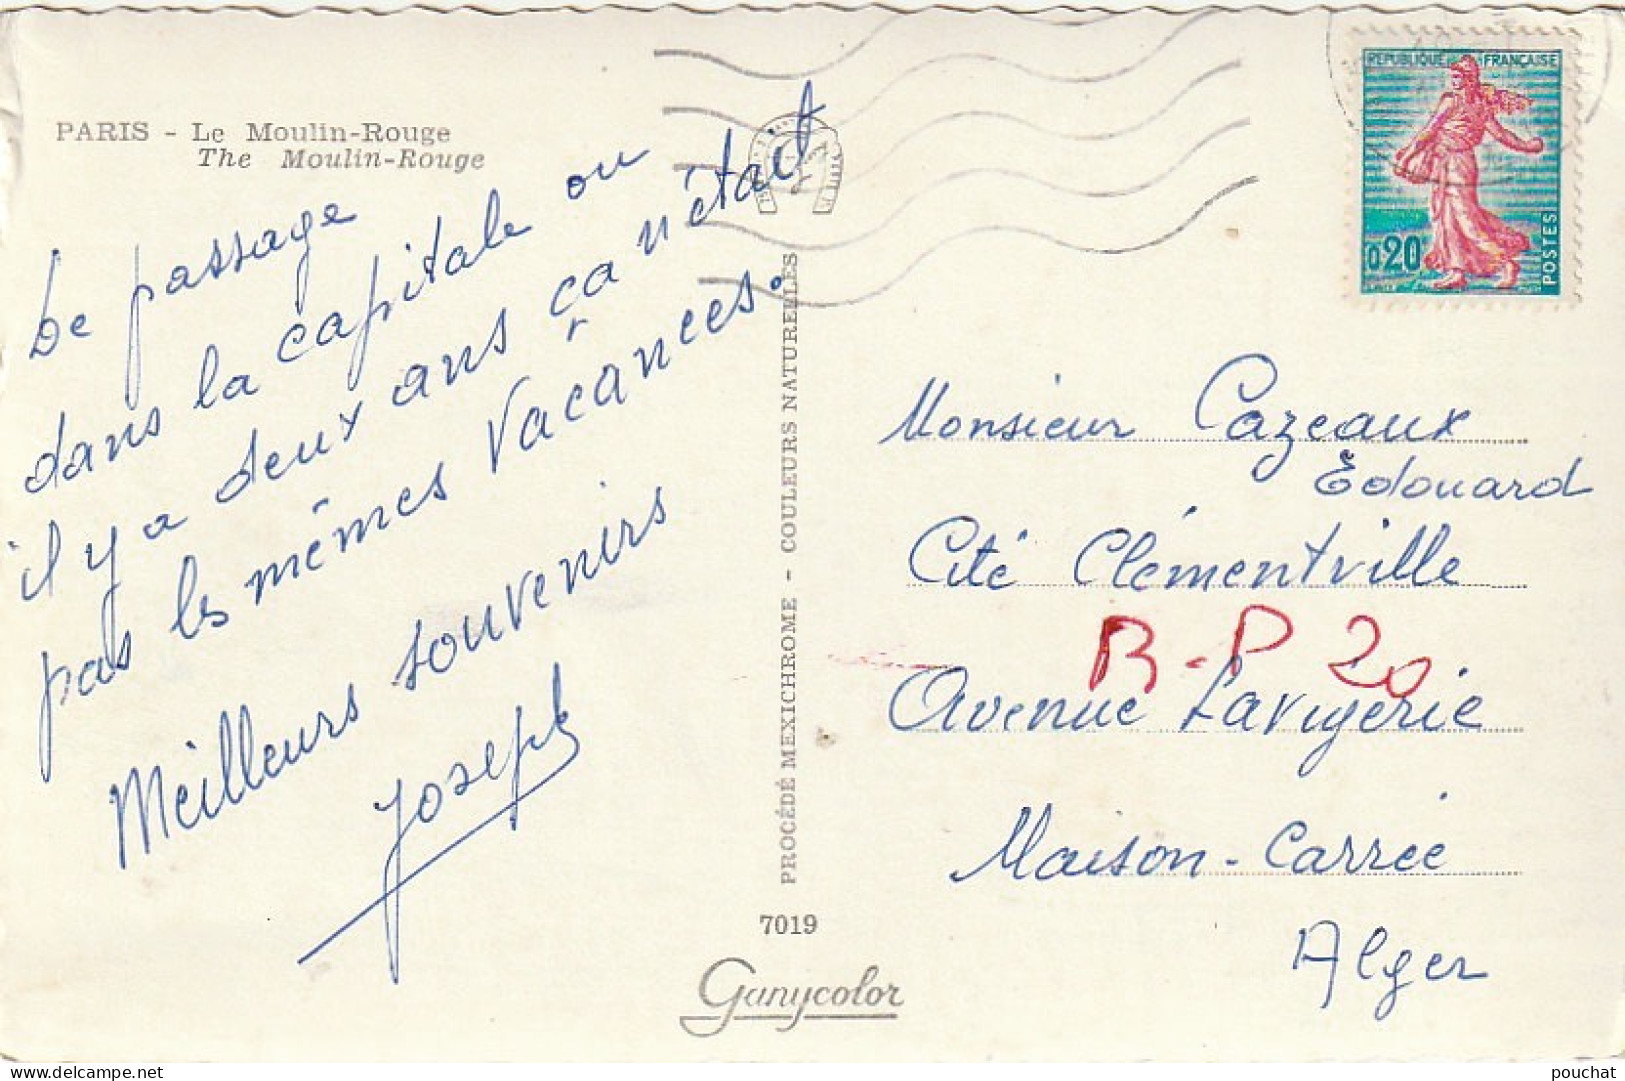 PARIS - Le Moulin-Rouge
The Moulin-Rouge
De passage
dans la capitale ou
il y a deux ans ça n'était
pas les mêmes vacances.
Meilleurs souvenirs
Joseph
PROCÉDÉ MEXICHROME - COULEURS NATURELLES
7019
Ganycolor
REPUBLIQUE FRANÇAISE
0,20
POSTES
Monsieur Cazeaux
Edouard
Cité Clémentville
B.P 20
Avenue Lavigerie
Maison-Carrée
Alger
delcampe.net
pouchat